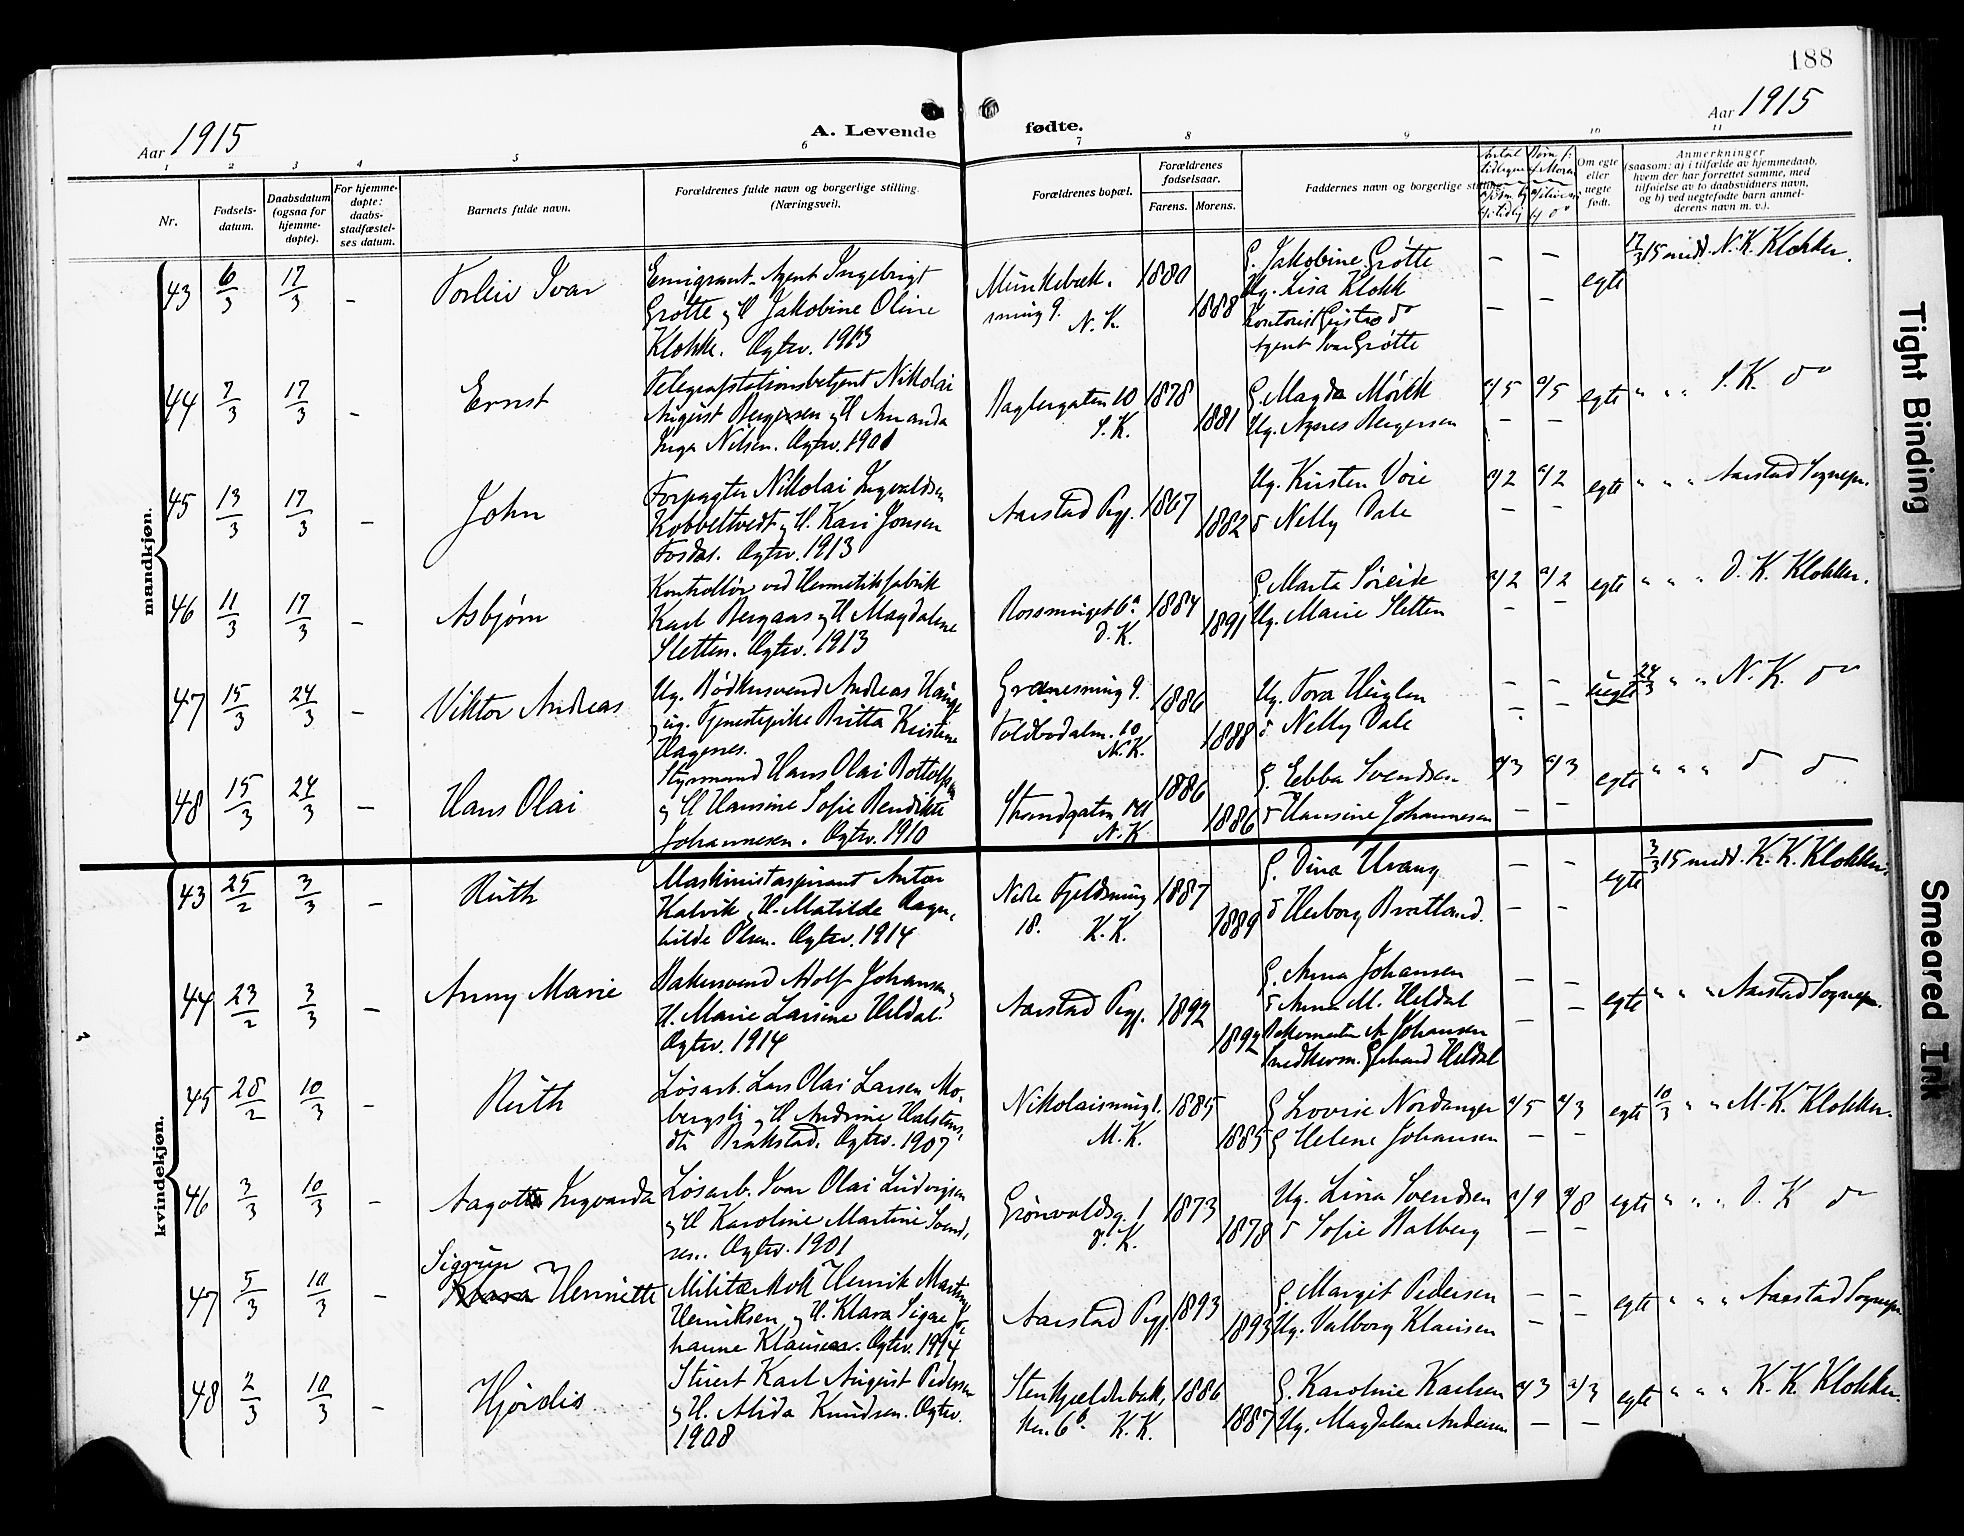 188
Aar 1915
A. Levende
fødte.
Aar 1915
1 2 3 4 5 6 7 8 9 10 11
Nr.
Fødsels-
datum.
Daabsdatum
(ogsaa for
hjemme-
døpte).
For hjemme-
døpte:
daabs-
stadfæstel-
ses datum.
Barnets fulde navn.
Forældrenes fulde navn og borgerlige stilling.
(Næringsvei).
Forældrenes bopæl.
Forældrenes
fødselsaar.
Farens. Morens.
Faddernes navn og borgerlige stilling.
Om egte
eller
uegte
født.
Anmerkninger
(saasom: a) i tilfælde av hjemmedaab,
hvem der har forrettet samme, med
tilføielse av to daabsvidners navn,
og b) ved uegtefødte barn anmel-
derens navn m. v.).
mandkjøn.
43 6/3 17/3 – Torleiv Ivar
Emigrant-Agent Ingebrigt
Grøtte og H Jakobine Oline
Klokk. Egtev. 1913
Munkebæk-
smug 9. N.K.
1880 1888
G. Jakobine Grøtte
Ug. Lisa Klokk
Kontorist Gustav do
Agent Ivar Grøtte
– –
– –
egte
17/3 15 medd. N.K. Klokker.
44 7/3 17/3 – Ernst
Telegrafstationsbetjent Nikolai
August Bergersen og H Amanda
Inga Nilsen. Egtev. 1901
Baglergaten 10
S.K.
1878 1881
G. Magda Mørck
Ug. Agnes Bergersen
a/5 a/5
– –
egte
" " S.K. do
45 13/3 17/3 – John
Forpagter Nikolai Ingvaldsen
Kobbeltvedt og H. Kari Jonsen
Fosdal. Egtev. 1913
Aarstad Pgj.
1867 1882
Ug. Kirsten Voie
do Nelly Dale
a/2 a/2
– –
egte
" " " Aarstad Sognepr.
46 11/3 17/3 – Asbjørn
Kontrollør ved Hermetikfabrik
Karl Bergaas og H Magdalene
Sletten. Egtev. 1913
Rossmuget 6a
D.K.
1884 1891
G. Marta Søreide
Ug. Marie Sletten
a/2 a/2
– –
egte
" " " D.K. Klokker.
47 15/3 24/3 – Viktor Andreas
Ug. Bødkersvend Andreas Hauge
og ug. Tjenestepike Britta Kristine
Hagenes.
Grønesmug 9.
Toldbodalm. 10
N.K.
1886 1888
Ug. Tora Huglen
do Nelly Dale
– –
– –
uegte
24/3 " " N.K. do
48 15/3 24/3 – Hans Olai
Styrmand Hans Olai Bottolfsen
og H Hansine Sofie Bendikte
Johannesen. Egtev. 1910
Strandgaten
N.K.
1886 1886
G. Ebba Svendsen
do Hansine Johannesen
a/3 a/3
– –
egte
" " " do do
kvindekjøn.
43 25/2 3/3 – Ruth
Maskinistaspirant Anton
Kalvik og H. Matilde Ragn-
hilde Olsen. Egtev. 1914
Nedre Fjeldsmug
18. K.K.
1887 1889
G. Dina Urang
do Herborg Bratland.
– –
– –
egte
3/3 15 medd. K.K. Klokker.
44 23/2 3/3 – Anny Marie
Bakersvend Adolf Johansen og
H. Marie Larsine Heldal.
Egtev. 1914
Aarstad Pgj.
1892 1892
G. Anna Johansen
do Anna M. Heldal
Bakermester A. Johansen
Snedkersv. Gerhard Heldal
– –
– –
egte
" " " Aarstad Sognepr.
45 28/2 10/3 – Ruth
Løsarb. Lars Olai Larsen Mo-
bergsli og H Andrine Halstens-
dtr Brakstad. Egtev. 1907
Nikolaismug 1.
M.K.
1885 1885
G Lovise Nordanger
G Helene Johansen
a/5 a/3
– –
egte
10/3 " " M.K. Klokker.
46 3/3 10/3 – Aagot Ingvarda
Løsarb. Ivar Olai Ludvigsen
og H Karoline Martine Svend-
sen. Egtev. 1901
Grønvoldsg. 1
D.K.
1873 1878
Ug. Lina Svendsen
do Sofie Dalberg
a/9 a/8
– –
egte
" " " D.K do
Sigrun
47 5/3 10/3 – Klara Henriette
Militærkok Henrik Martin
Henriksen og H. Klara Signe Jo-
hanne Klausen. Egtev. 1914
Aarstad Pgj.
1893 1893
G. Margit Pedersen
Ug. Valborg Klausen
– –
– –
egte
" " " Aarstad Sognepr
48 2/3 10/3 – Hjørdis
Stuert Karl August Pedersen
og H. Alida Knudsen. Egtev.
1908
Stenkjælderbak-
ken 6b. K.K.
1886 1887
G. Karoline Karlsen
Ug. Magdalene Andersen
a/3 a/3
– –
egte
" " " K.K. Klokker.
Tight Binding
Smeared Ink